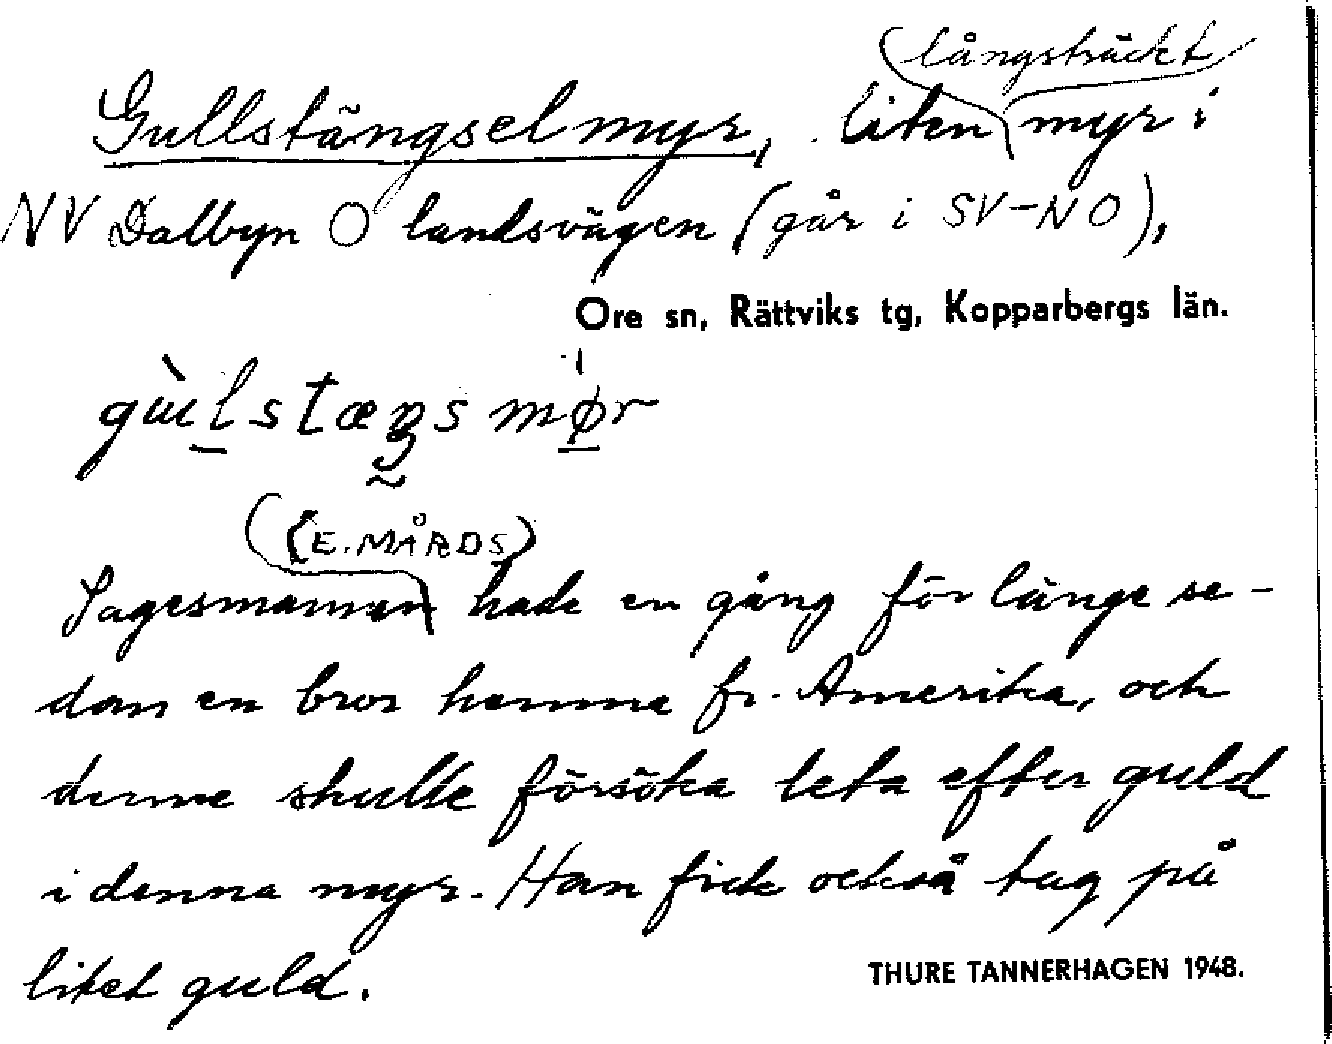 långsträckt
Gullstängselmyr, liten myr i
NV Dalbyn O landsvägen (går i SV-NO),
Ore sn, Rättviks tg, Kopparbergs län.
(E. MÅRDS)
Sagesmannen hade en gång för länge se-
dan en bror hemma fr. Amerika, och
denne skulle försöka leta efter guld
i denna myr. Han fick också tag på
litet guld.
THURE TANNERHAGEN 1948.